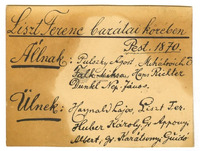 Liszt Ferenc barátai körében
Pest. 1870.
Állnak: Pulszky Ágost Mihalovich Ö
Hans Richter
Dunkl Nep. János.
Ülnek: Haynald Lajos, Liszt Fer.
Huber Károly, Gr. Appony
Albert, Gr. Karátsony Guidó